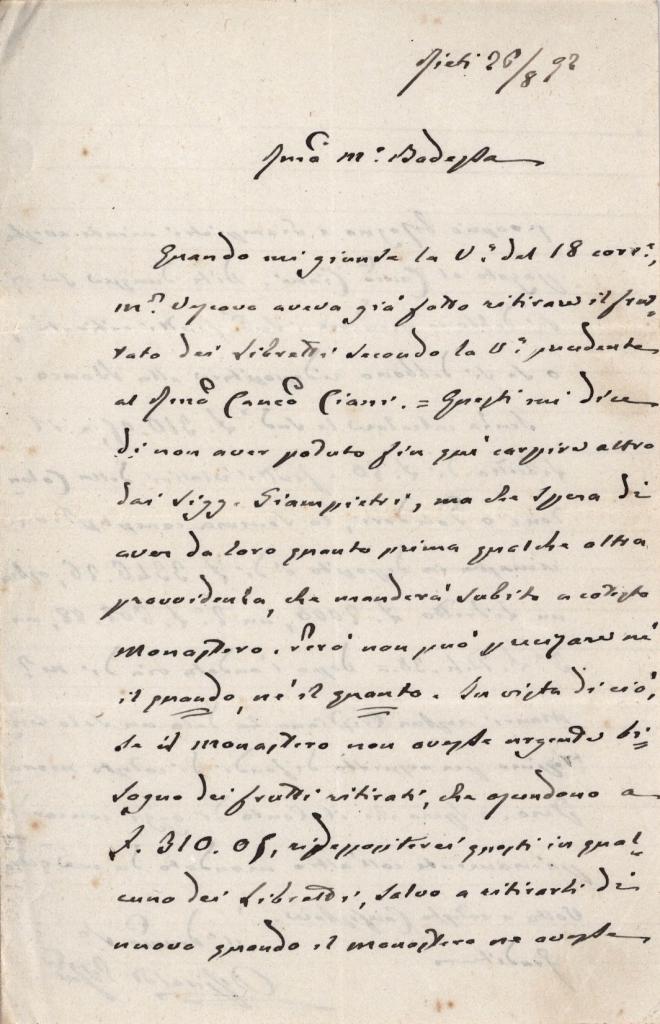 Rieti 26/8 92
Rma M.e Badessa
Quando mi giunse la V.a del 18 corr.e,
m.r Vescovo aveva già fatto ritirare il frut=
tato dei Libretti secondo la V.a prudente
al Rmo Canco Ciani. = Questi mi dice
di non aver potuto fin qui carpire altro
dai Sigg. Giampietri, ma che spera di
aver da loro quanto prima qualche altra
provvidenza, che manderà subito a cotesto
Monastero. Però non può precizare nè
il quando, nè il quanto. In vista di ciò,
se il Monastero non avesse urgente bi=
sogno dei frutti ritirati, che ascendono a
£. 310.05, ridepositerei questi in qual=
cuno dei Libretti, salvo a ritirarli di
nuovo quando il Monastero ne avesse